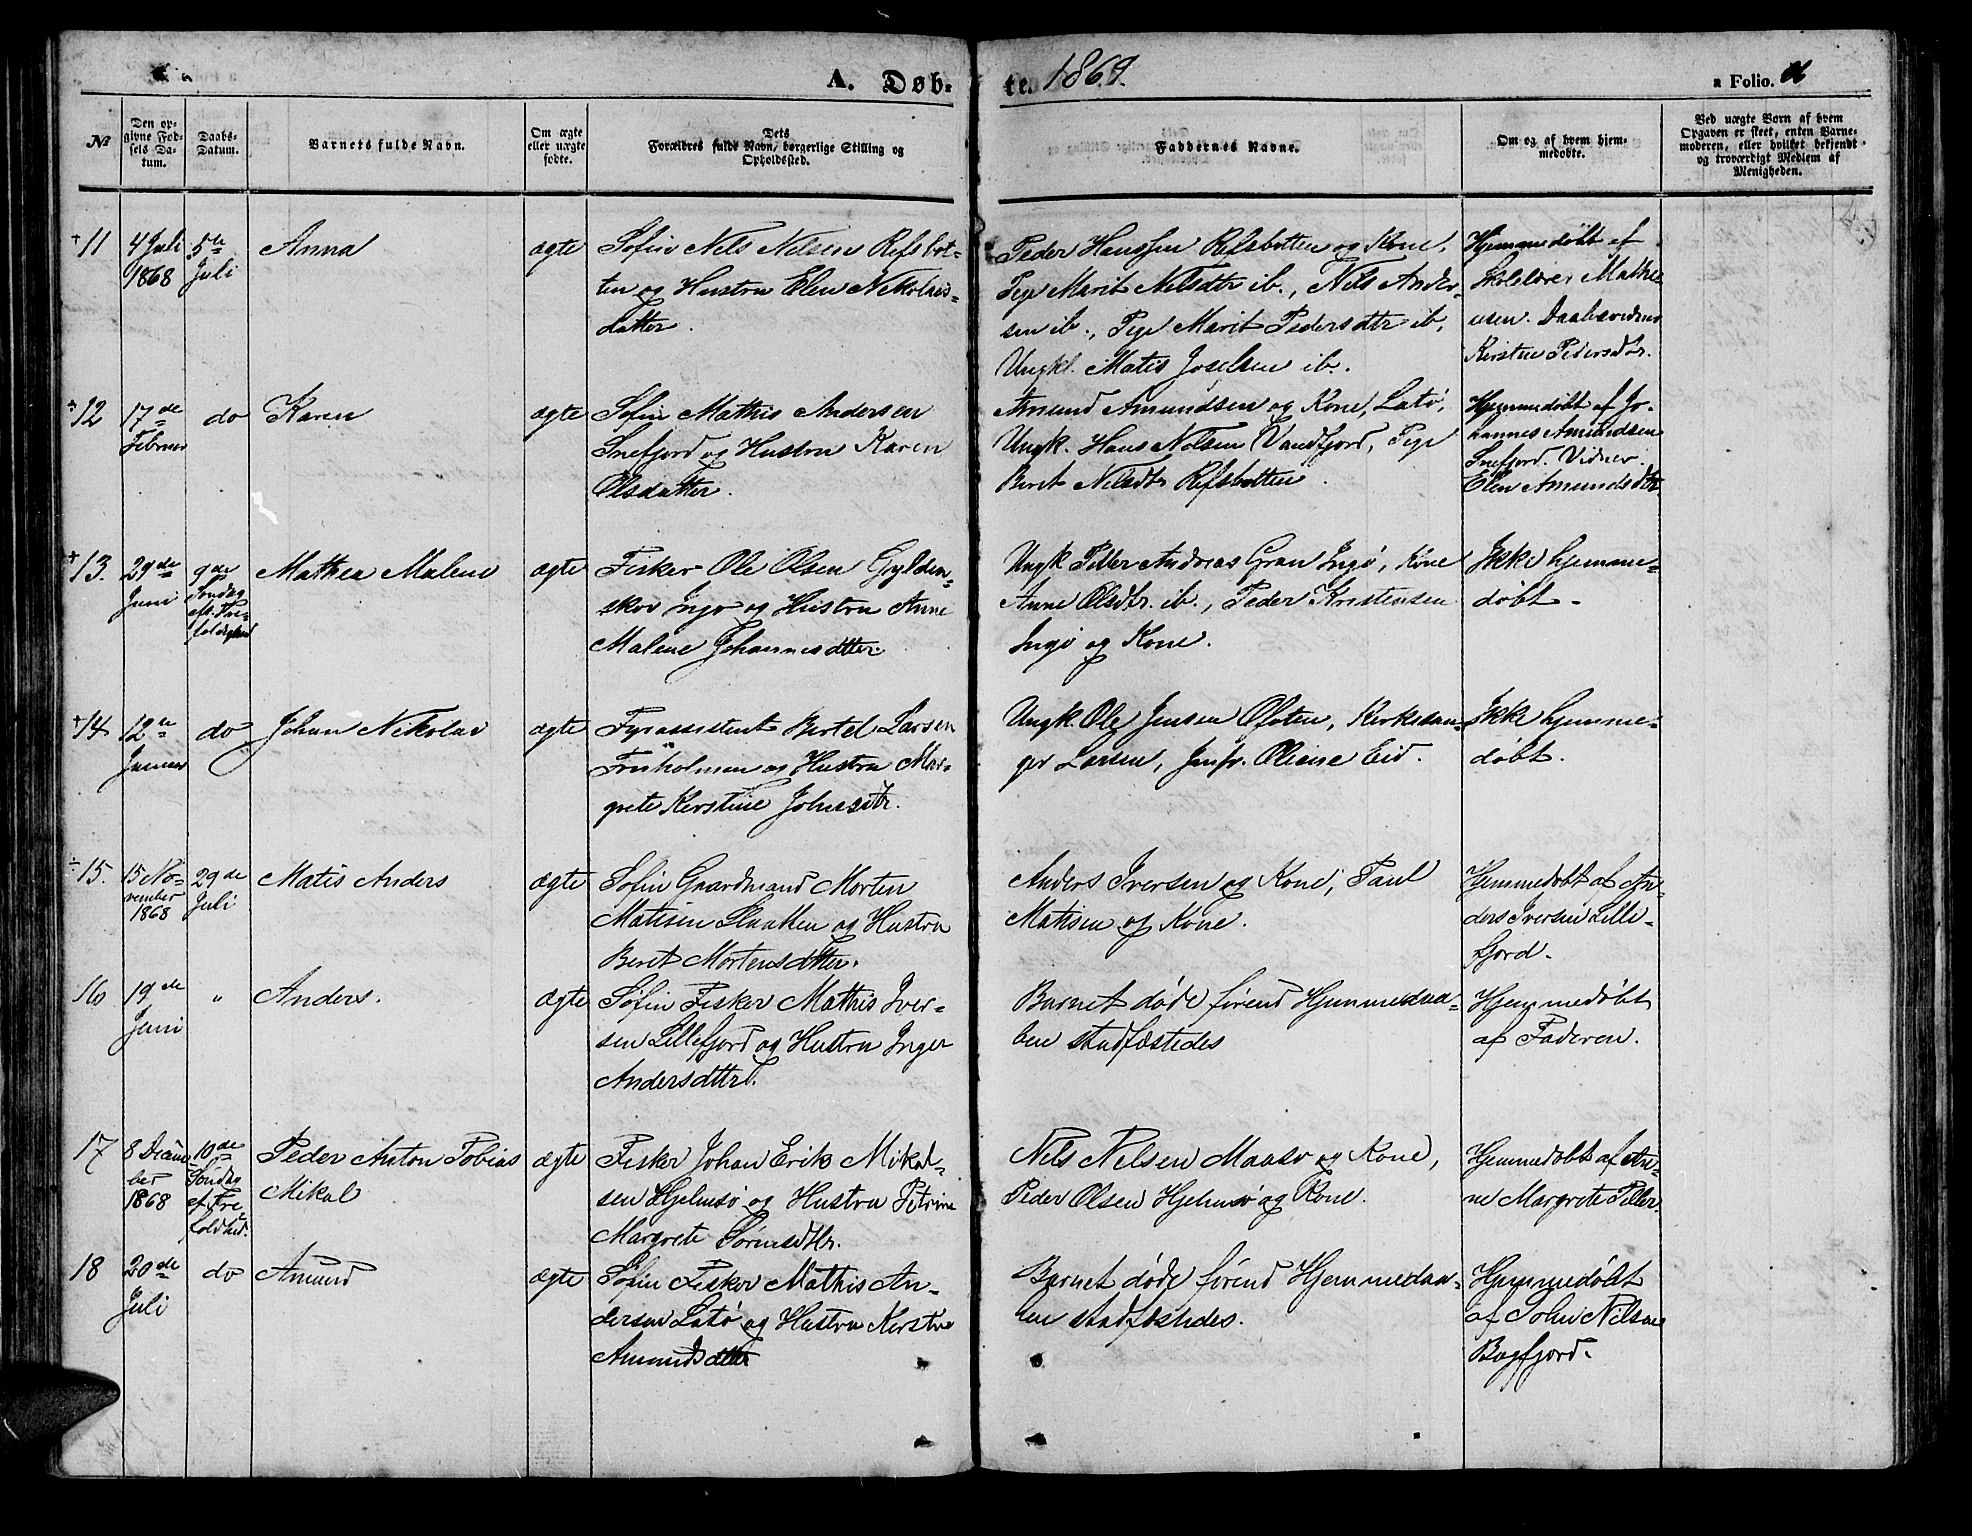 A. Døb-
te. 1869.
a Folio.
№
Den op-
givne Fød-
sels Da-
tum.
Daabs-
Datum.
Barnets fulde Navn.
Om ægte
eller uægte
fødte.
Dets
Forældres fulde Navn, borgerlige Stilling og
Opholdssted.
Faddernes Navne.
Om og af hvem hjem-
medøbte.
Ved uægte Børn af hvem
Opgaven er skeet, enten Barne-
moderen, eller hvilket bekjendt
og troværdigt Medlem af
Menigheden.
+11
4 Juli
1868
5te
Juli
Anna
ægte
Søfin Nils Nilsen Refsbot-
ten og Hustru Elen Nikolais-
datter.
Peder Hanssen Refsbotten og Kone,
Pige Marit Nilsdtr ib., Nils Ander-
sen ib., Pige Marit Pedersdtr ib,
Ungkl. Matis Joselsen ib.
Hjemmedøbt af
Skolelærer Mathi-
esen. Daabsvidner
Kirsten Pedersdtr.
+12
17de
Februar
do
Karen
ægte
Søfin Mathis Andersen
Snefjord og Hustru Karen
Olsdatter.
Amund Amundsen og Kone, Latø,
Ungk. Hans Nilsen Vandfjord, Pige
Beret Nilsdtr Refsbotten.
Hjemmedøbt af Jo-
hannes Amundsen
Snefjord. Vidner
Elen Amundsdtr
+13.
29de
Juni
9de
Søndag
eft. Tre-
foldighed
Mathea Malene
ægte
Fisker Ole Olsen Gylden-
skov Ingø og Hustru Anne
Malene Johannesdtter.
Ungk Piller Andreas Gran Ingø, Kone
Anne Olsdtr. ib., Peder Kristensen
Ingø og Kone.
Ikke hjemme-
døbt.
+14
12te
Januar
do
Johan Nikolai
ægte
Fyrassistent Bertel Larsen
Fruholmen og Hustru Mar-
grete Kerstine Johnsdtr.
Ungk. Ole Jensen Ofoten, Kirkesan-
ger Larsen, Jmfr. Oliane Eid.
Ikke hjemme-
døbt.
÷15.
15 No-
vember
1868
29de
Juli
Matis Anders
ægte
Søfin Gaardmand Morten
Matisen Slaatten og Hustru
Beret Mortensdtter.
Anders Iversen og Kone, Paul
Matisen og Kone.
Hjemmedøbt af An-
ders Iversen Lille-
fjord.
16
19de
Juni
"
Anders.
ægte
Søfin Fisker Mathis Iver-
sen Lillefjord og Hustru Inger
Andersdttr.
Barnet døde førend Hjemmedaa-
ben stadfæstedes
Hjemmedøbt
af Faderen.
17
8 Decem-
ber
1868
10de
Søndag
ef. Tre-
foldhed.
Peder Anton Tobias
Mikal
ægte
Fisker Johan Erik Mikal-
sen Hjelmsø og Hustru Petrine
Margrete Sørensdtr.
Nils Nilsen Maasø og Kone,
Peder Olsen Hjelmsø og Kone.
Hjemmedøbt af An-
ne Margrete Piller.
18
20de
Juli
do
Amund
ægte
Søfin Fisker Mathis An-
dersen Latø og Hustru Kerstine
Amundsdtter
Barnet døde førend Hjemmedaa-
ben stadfæstedes.
Hjemmedøbt
af John Nilsen
Bagfjord.